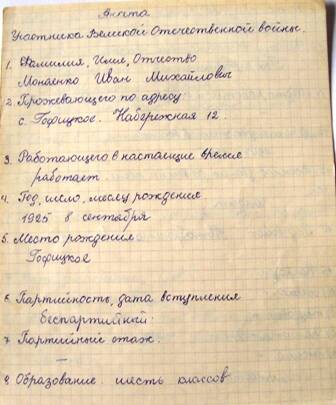 Анкета
Участника Великой Отечественной войны.
1. Фамилия, Имя, Отчество
Монаенко Иван Михайлович
2. Проживающего по адресу
с. Гофицкое. Набережная 12.
3. Работающего в настоящие время
работает.
4. Год, число, месяц рождения
1925 8 сентября
5. Место рождения
Гофицкое
6. Партийность, дата вступления
Беспартийный.
7. Партийный стаж.
—
8. Образование шесть классов